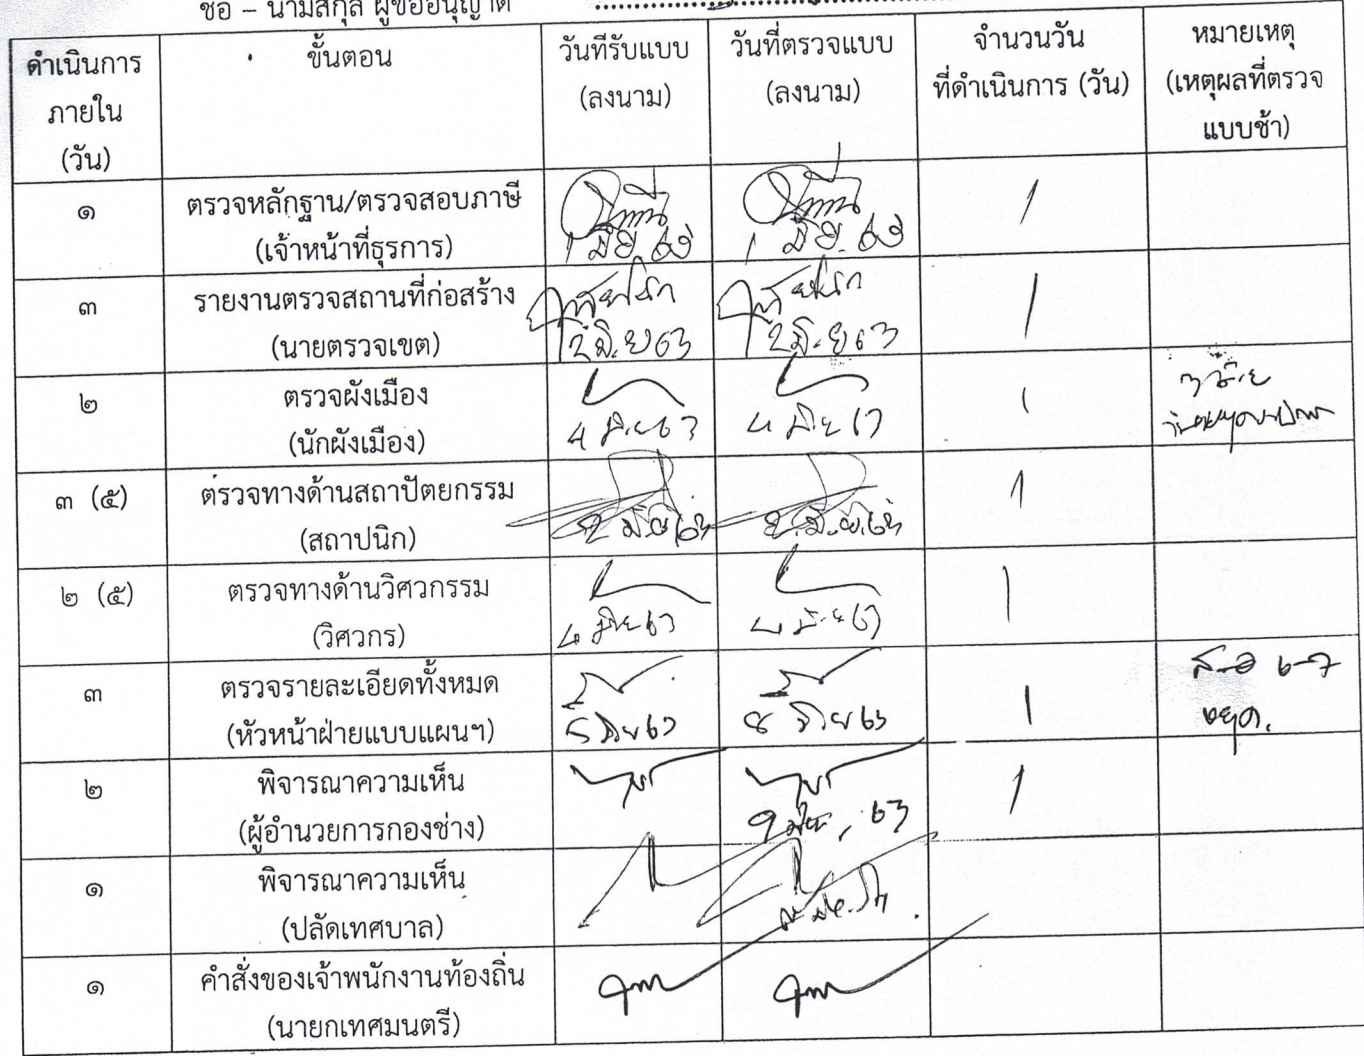 ชื่อ – นามสกุล ผู้ขออนุญาต
ดำเนินการ
ภายใน
(วัน)
ขั้นตอน
วันที่รับแบบ
(ลงนาม)
วันที่ตรวจแบบ
(ลงนาม)
จำนวนวัน
ที่ดำเนินการ (วัน)
หมายเหตุ
(เหตุผลที่ตรวจ
แบบช้า)
๑
ตรวจหลักฐาน/ตรวจสอบภาษี
(เจ้าหน้าที่ธุรการ)
1 มิย. 63
1 มิย. 63
1
๓
รายงานตรวจสถานที่ก่อสร้าง
(นายตรวจเขต)
2 มิ.ย 63
2 มิ.ย 63
1
๒
ตรวจผังเมือง
(นักผังเมือง)
4 มิย 63
4 มิย 63
1
3 มิ.ย
๓ (๕)
ตรวจทางด้านสถาปัตยกรรม
(สถาปนิก)
2 มิย 63
2 มิ.ย. 63
1
๒ (๕)
ตรวจทางด้านวิศวกรรม
(วิศวกร)
4 มิย 63
4 มิย 63
1
๓
ตรวจรายละเอียดทั้งหมด
(หัวหน้าฝ่ายแบบแผนฯ)
5 มิย 63
8 มิย 63
1
ส-อ 6-7
หยุด.
๒
พิจารณาความเห็น
(ผู้อำนวยการกองช่าง)
9 มิย. 63
1
๑
พิจารณาความเห็น
(ปลัดเทศบาล)
๑
คำสั่งของเจ้าพนักงานท้องถิ่น
(นายกเทศมนตรี)